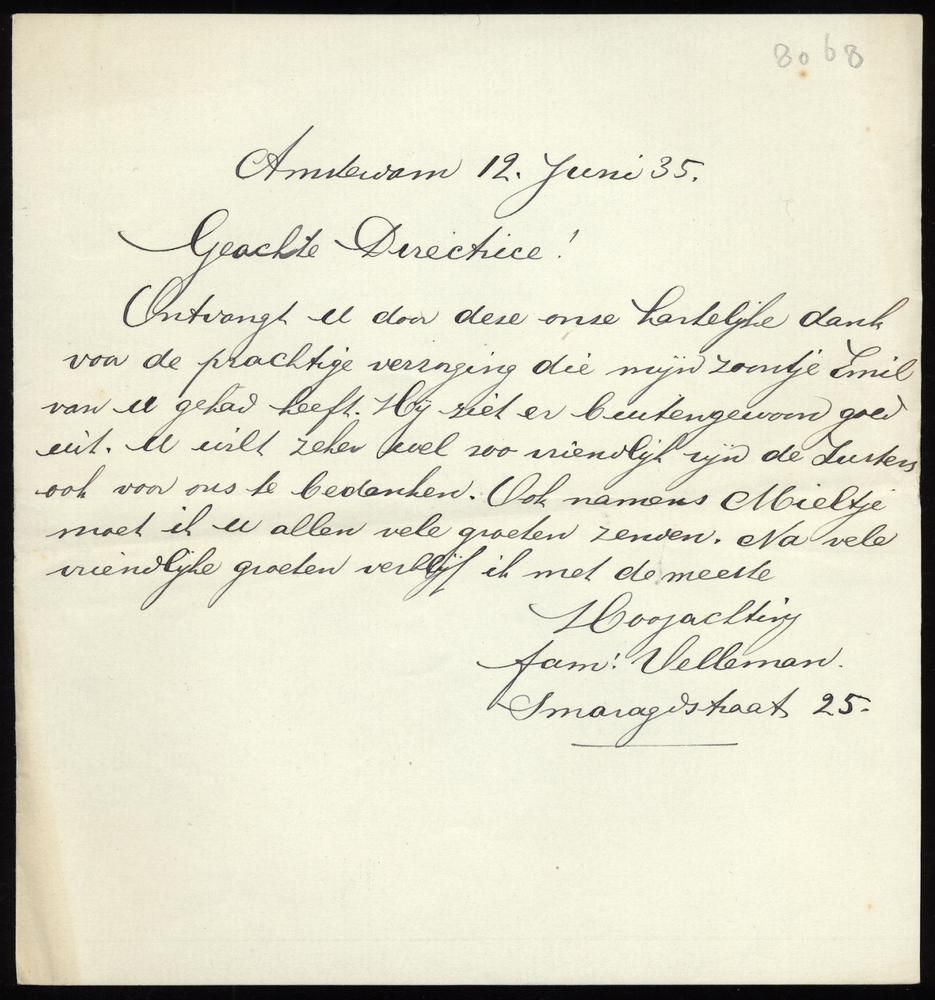 8068
Amsterdam 12. Juni 35.
Geachte Directrice!
Ontvangt U door dese onse hartelijke dank
voor de prachtige versorging die mijn zoontje Emil
van U gehad heeft. Hij siet er buitengewoon goed
uit. U wilt zeker wel soo vriendlijk sijn de Zusters
ook voor ons te bedanken. Ook namens Mieltje
moet ik U allen vele groeten zenden. Na vele
vriendlijke groeten verblijf ik met de meeste
Hoogachting
fam: Velleman.
Smaragdstraat 25.